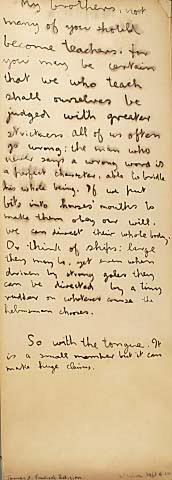 My brothers, not
many of you should
become teachers, for
you may be certain
that we who teach
shall ourselves be
judged with greater
strictness all of us often
go wrong; the man who
never says a wrong word is
a perfect character, able to bridle
his whole being. If we put
bits into horses' mouths to
make them obey our will,
we can direct their whole body.
Or think of ships: large
they may be, yet even when
driven by strong gales they
can be directed by a tiny
rudder on whatever course the
helmsman chooses.
So with the tongue. It
is a small member but it can
make huge claims.